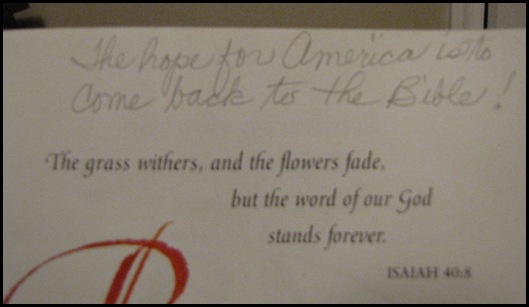 The hope for America is to
Come back to the Bible!
The grass withers, and the flowers fade,
but the word of our God
stands forever.
ISAIAH 40:8